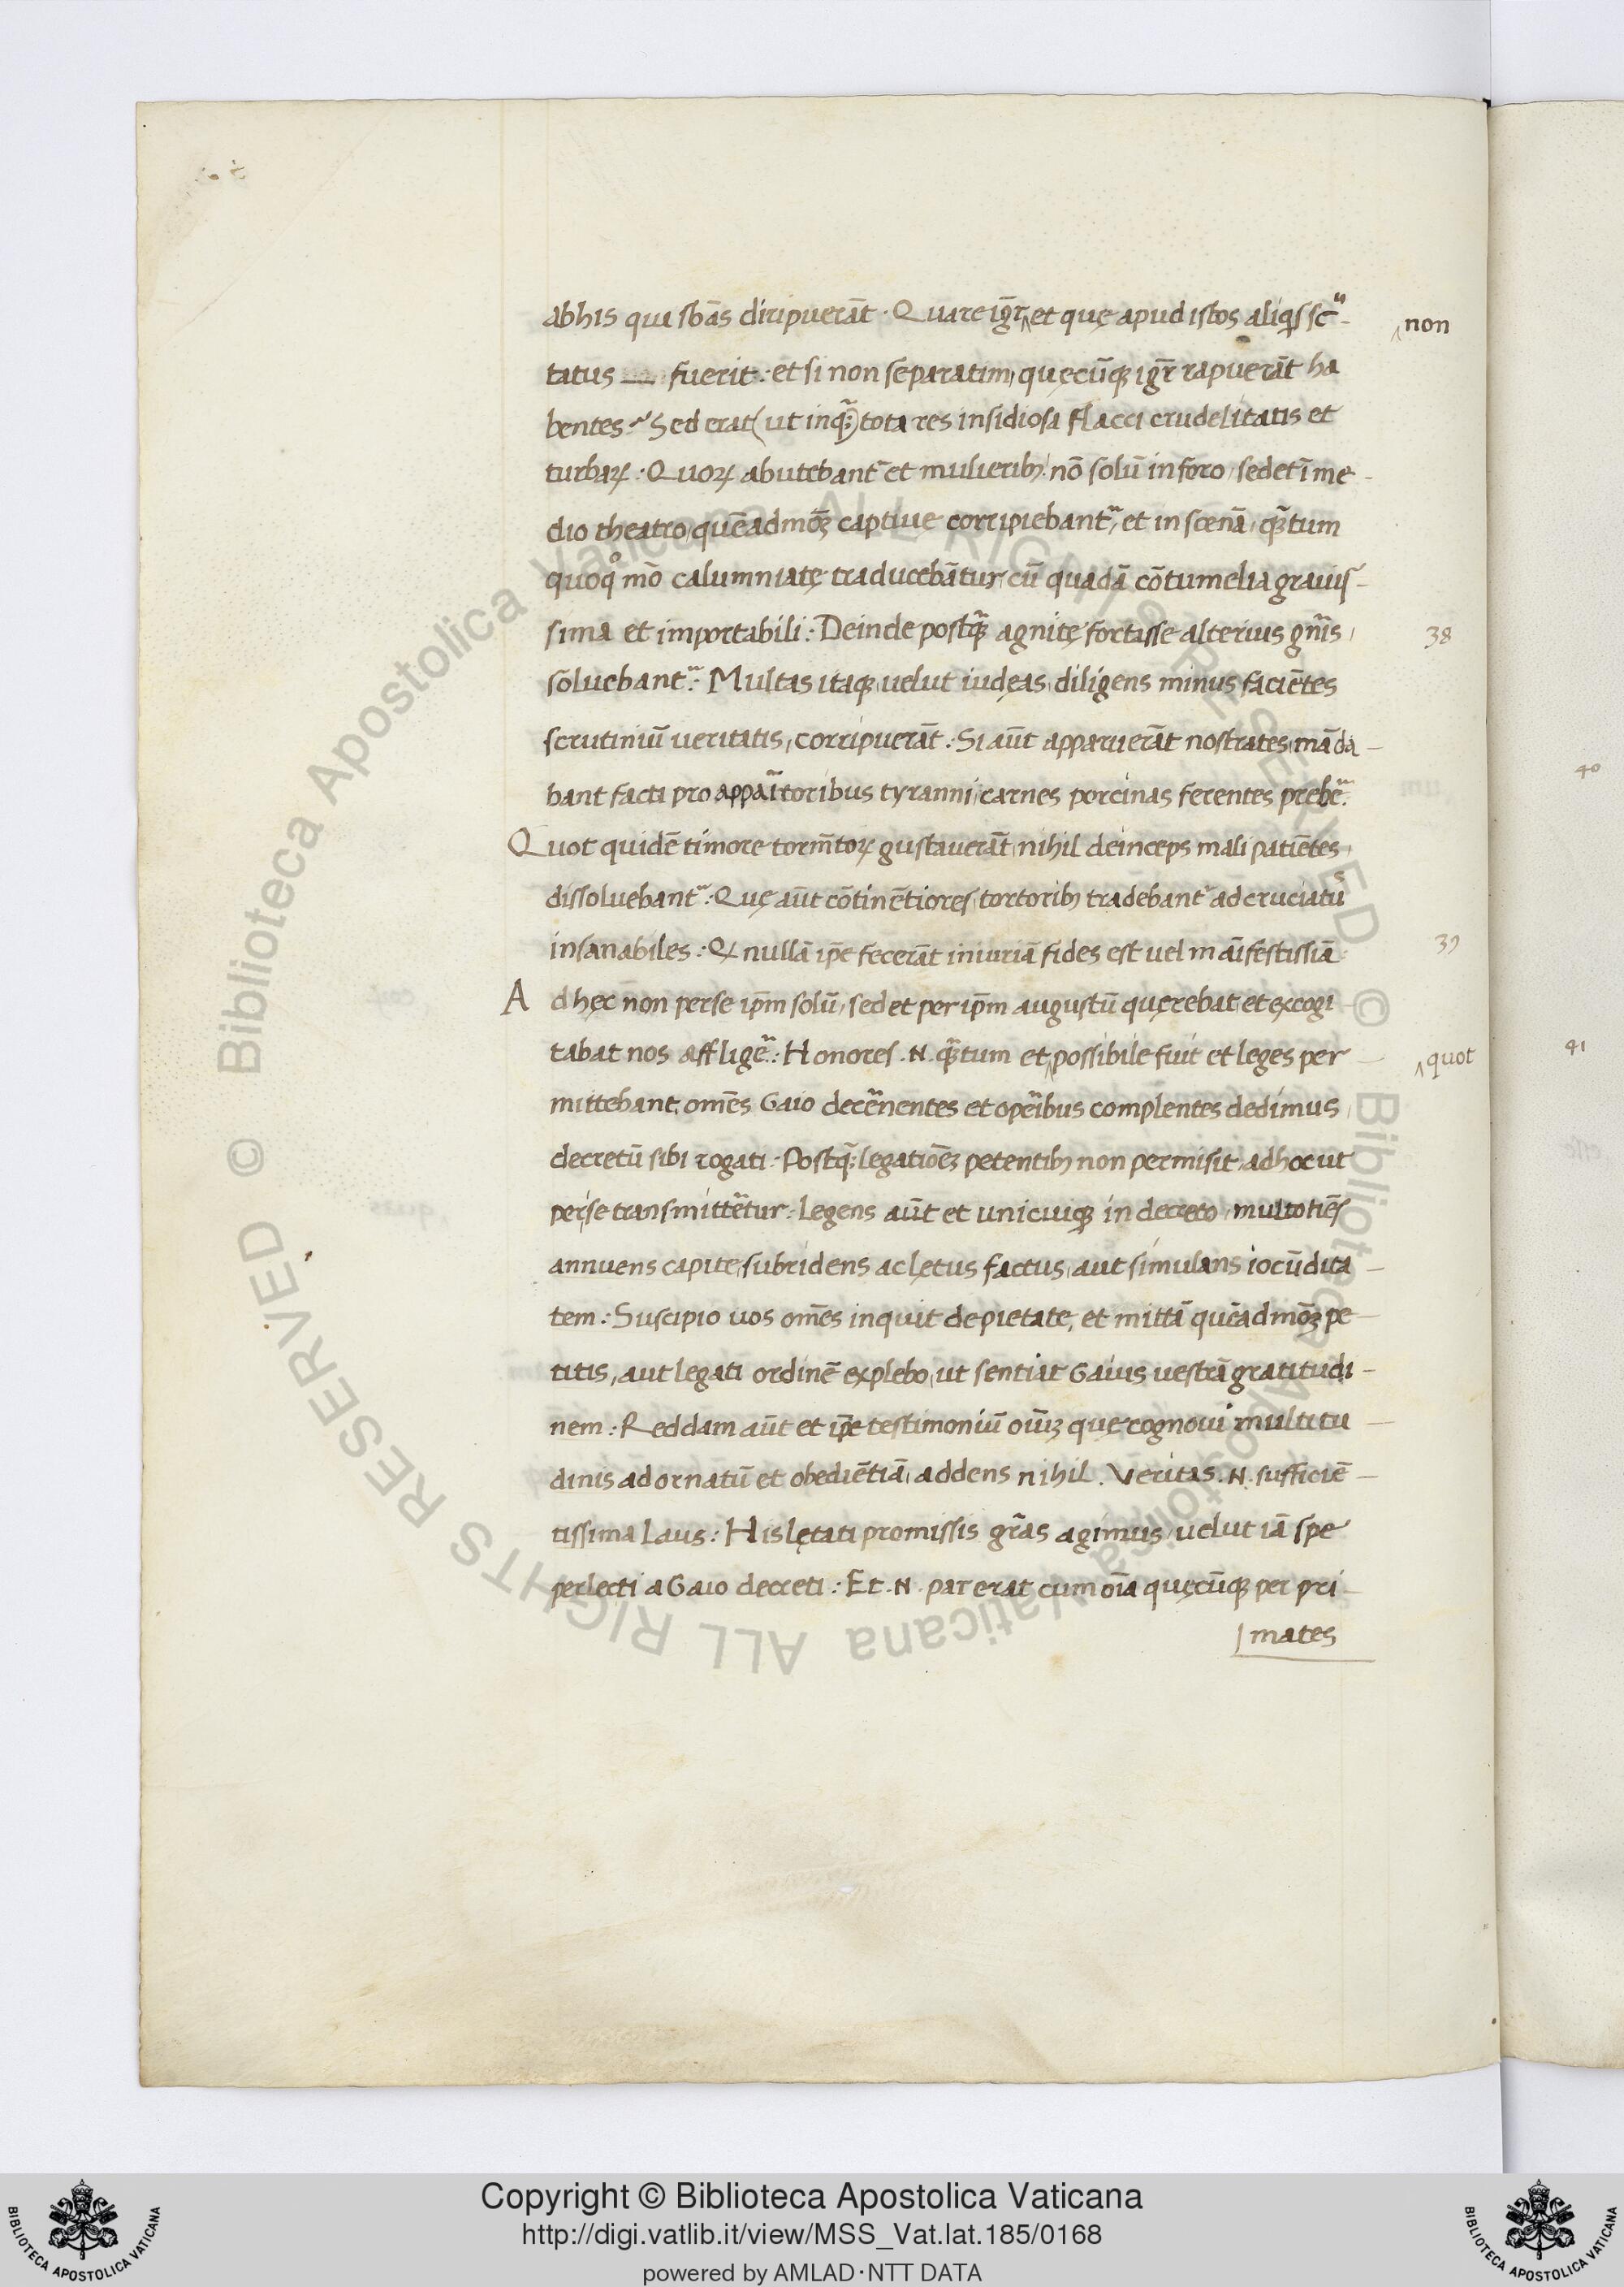 abhis qui sbās diripuerāt · Quare igr̄ ‸ et quę apud istos aliqs sc̄u-
‸ non
tatus — fuerit : et si non separatim, quęcūq; igr̄ rapuerāt ha
bentes ? Sed erat ( ut inq̄; ) tota res insidiosa flacci crudelitatis et
turbaꝝ · Quoꝝ abutebant̄ et mulierib; nō solū in foro, sed et ī me-
dio theatro, quēadmōꝫ captiue corripiebant̄, et in scenā, qꝫ̄tum
quoq; mō calumniatę traducebātur, cū quadā cōtumelia grauis-
sima et importabili : Deinde postqꝫ̄ agnitę fortasse alterius gn̄is,
38
soluebant̄ : Multas itaq; uelut iudęas, diligens minus faciētes
scrutiniū ueritatis, corripuerāt : Si aūt apparuerāt nostrates, māda-
bant facti pro appaītoribus tyranni, carnes porcinas ferentes prebē̄ .
Quot quidē timore torm̄toꝝ gustauerāt, nihil deinceps mali patiētes,
dissoluebant̄ : Quę aūt cōtinētiores, tortorib; tradebant̄ ad cruciatus
insanabiles : Qꝫ nullā ip̄e fecerāt iniuriā fides est uel māifestissiā :
39
Ad hęc non per se ip̄m solū, sed et per ip̄m augustū quęrebat, et excogi
tabat nos afflige͂ : Honores .N. qꝫ̄tum et ‸ possibile fuit et leges per-
‸ quot
mittebant, omēs Gaio decēnentes et opēibus complentes dedimus,
decretū sibi rogati · Postq̄; legatiōeꝫ petentib; non permisit, ad hoc ut
per se transmittētur · Legens aūt et unicuiq; in decreto, multotiēs
annuens capite, subridens ac lętus factus, aut simulans iocūdita-
tem : Suscipio uos omēs inquit de pietate, et mittā quēadmōꝫ pe-
titis, aut legati ordinē explebo, ut sentiat Gaius uestrā gratitudi-
nem : Reddam aūt et ip̄e testimoniū oīuꝫ quę cognoui multitu-
dinis ad ornatū et obediētiā, addens nihil . Veritas .N. sufficiē-
tissima Laus : His lętati promissis gr̄as agimus, uelut iā spe
perlecti a Gaio decreti : Et .N. par erat cum oīa quęcūq; per pri-
mates
40
41
Copyright © Biblioteca Apostolica Vaticana
http://digi.vatlib.it/view/MSS_Vat.lat.185/0168
powered by AMLAD·NTT DATA
BIBLIOTECA APOSTOLICA VATICANA
BIBLIOTECA APOSTOLICA VATICANA
© Biblioteca Apostolica Vaticana ALL RIGHTS RESERVED © Biblioteca Apostolica Vaticana ALL RIGHTS RESERVED